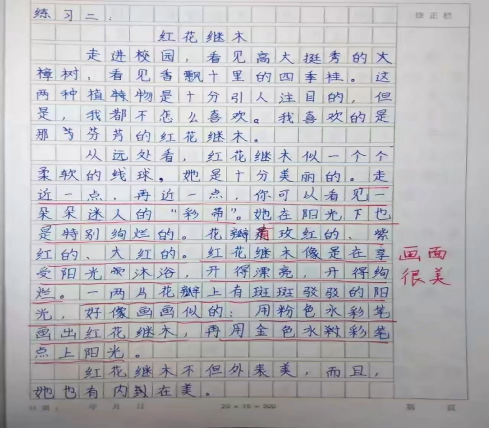 练习二.
修正栏
红花继木
走进校园，看见高大挺秀的大
樟树，看见香飘十里的四季桂。这
两种植物是十分引人注目的，但
是，我都不怎么喜欢。我喜欢的是
那芬芳的红花继木。
从远处看，红花继木似一个个
柔软的线球。她是十分美丽的。走
近一点，再近一点，你可以看见一
朵朵迷人的“彩带”。她在阳光下也
是特别绚烂的。花瓣有玫红的、紫
红的、大红的。红花继木像是在享
受阳光沐浴，开得漂亮，开得绚
烂。一两片花瓣上有斑斑驳驳的阳
光，好像画画似的：用粉色水彩笔
画出红花继木，再用金色水粉彩笔
点上阳光。
红花继木不但外表美，而且，
她也有内在美。
画面
很美
日期： 年 月 日
20×15=300
第 页